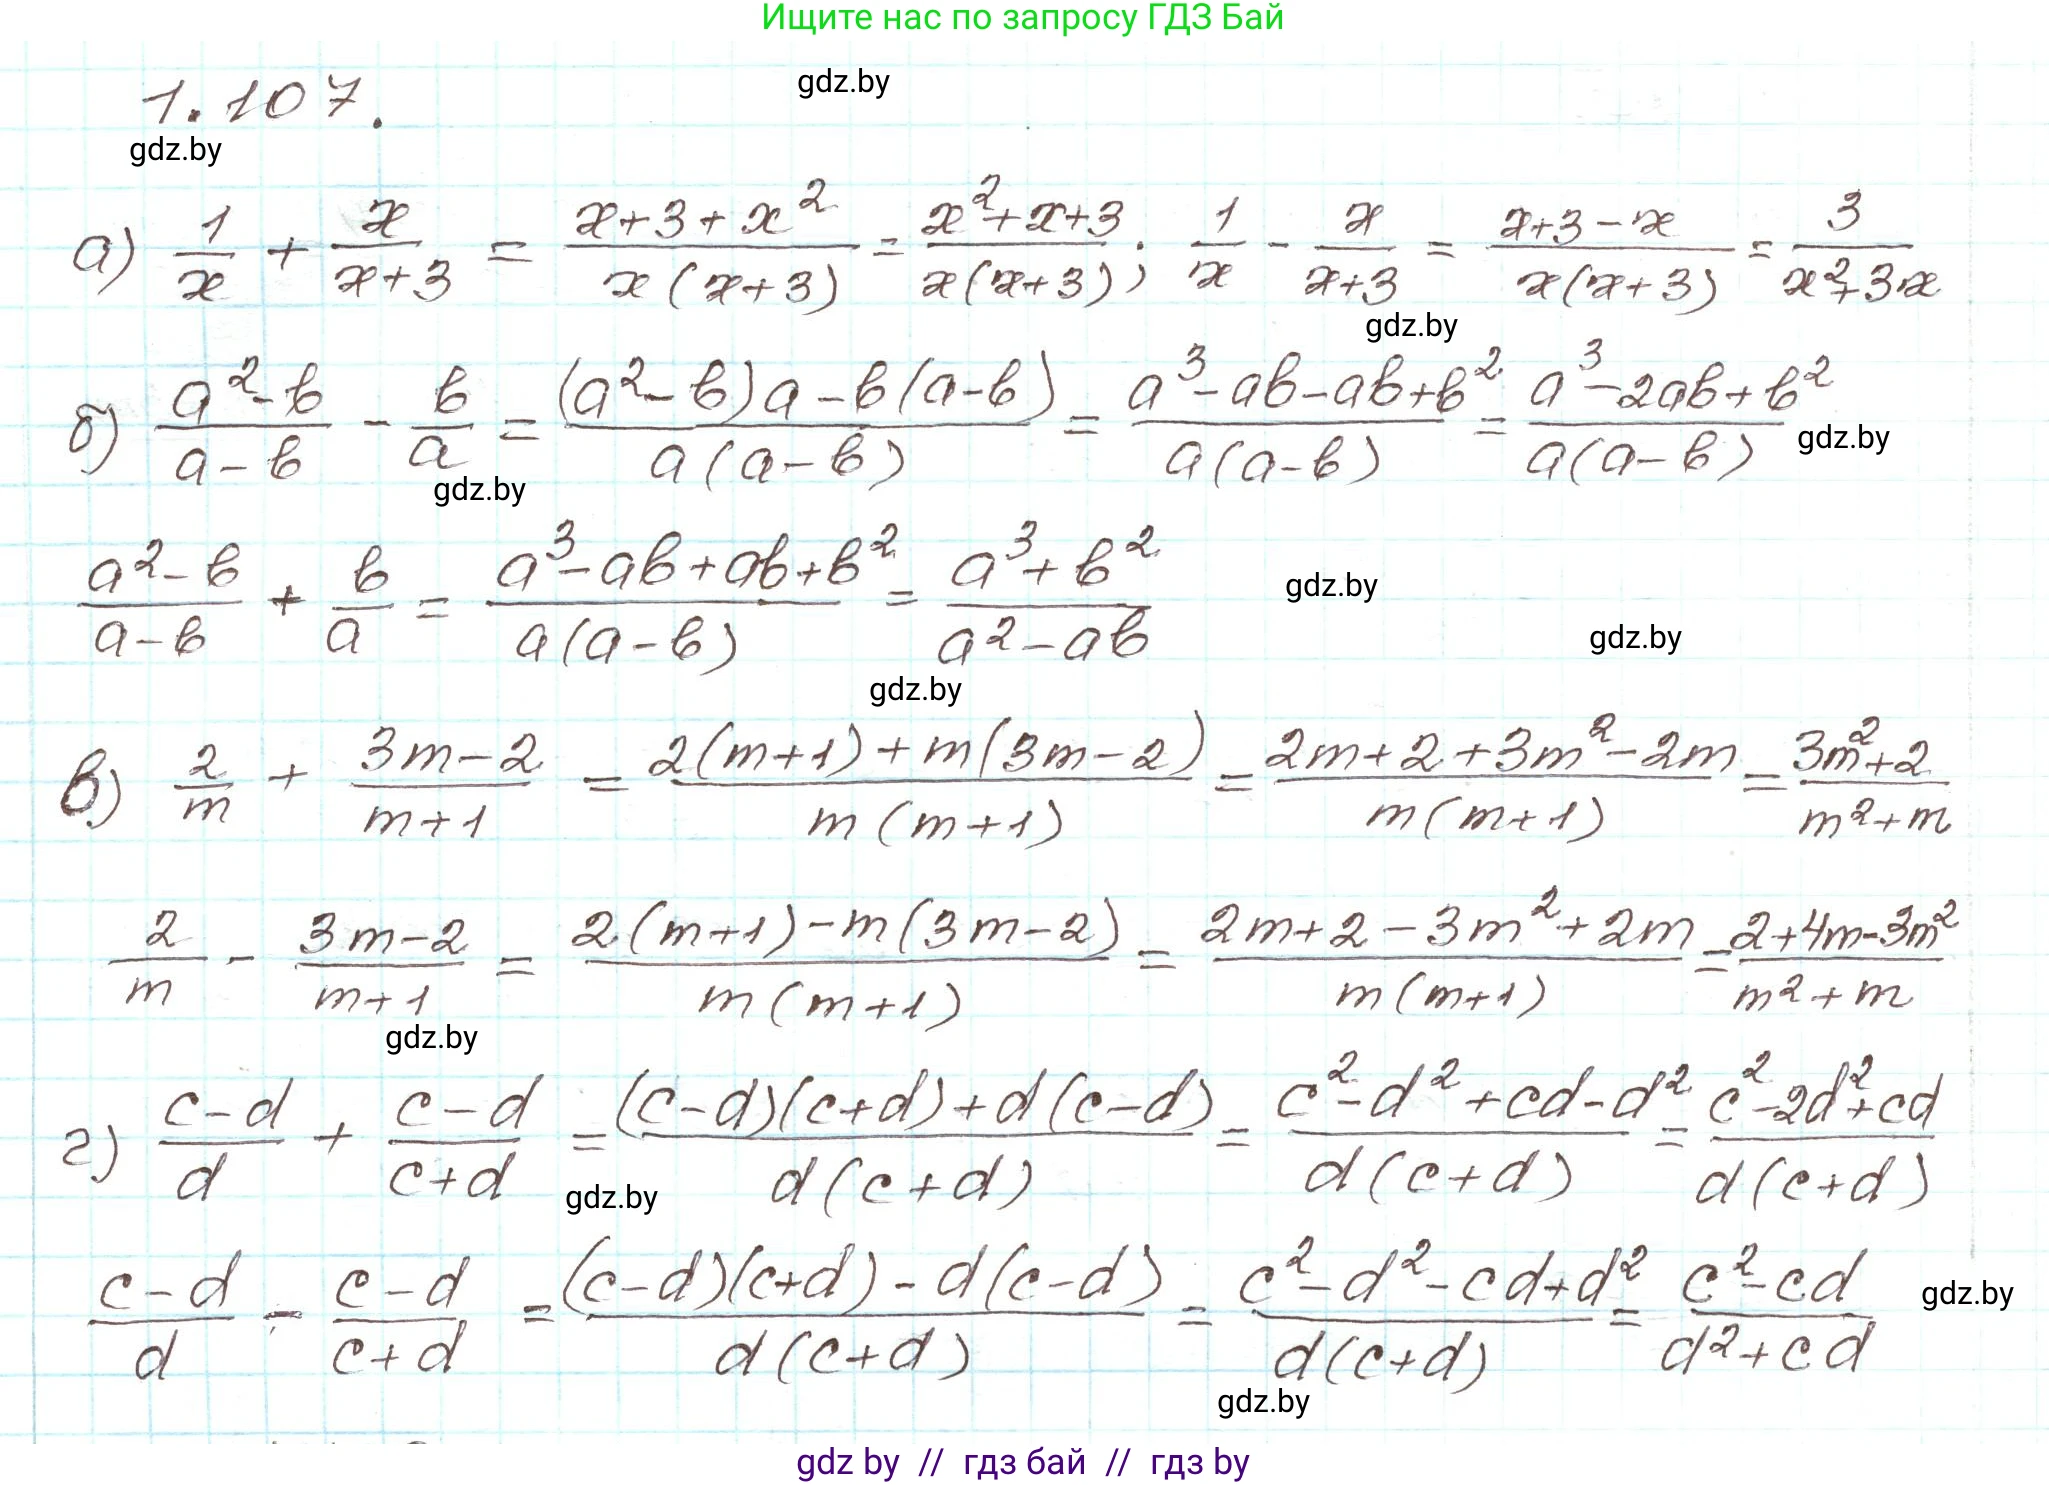 Ищите нас по запросу ГДЗ Бай
gdz.by
1.107.
gdz.by
а) 1/x + x/(x+3) = (x+3+x²)/(x(x+3)) = (x²+x+3)/(x(x+3)); 1/x - x/(x+3) = (x+3-x)/(x(x+3)) = 3/(x²+3x)
gdz.by
б) (a²-b)/(a-b) - b/a = ((a²-b)a-b(a-b))/(a(a-b)) = (a³-ab-ab+b²)/(a(a-b)) = (a³-2ab+b²)/(a(a-b))
gdz.by
gdz.by
(a²-b)/(a-b) + b/a = (a³-ab+ab+b²)/(a(a-b)) = (a³+b²)/(a²-ab)
gdz.by
gdz.by
gdz.by
в) 2/m + (3m-2)/(m+1) = (2(m+1)+m(3m-2))/(m(m+1)) = (2m+2+3m²-2m)/(m(m+1)) = (3m²+2)/(m²+m)
2/m - (3m-2)/(m+1) = (2(m+1)-m(3m-2))/(m(m+1)) = (2m+2-3m²+2m)/(m(m+1)) = (2+4m-3m²)/(m²+m)
gdz.by
г) (c-d)/d + (c-d)/(c+d) = ((c-d)(c+d)+d(c-d))/(d(c+d)) = (c²-d²+cd-d²)/(d(c+d)) = (c²-2d²+cd)/(d(c+d))
gdz.by
(c-d)/d - (c-d)/(c+d) = ((c-d)(c+d)-d(c-d))/(d(c+d)) = (c²-d²-cd+d²)/(d(c+d)) = (c²-cd)/(d²+cd)
gdz.by
gdz.by
gdz by // гдз бай // гдз by